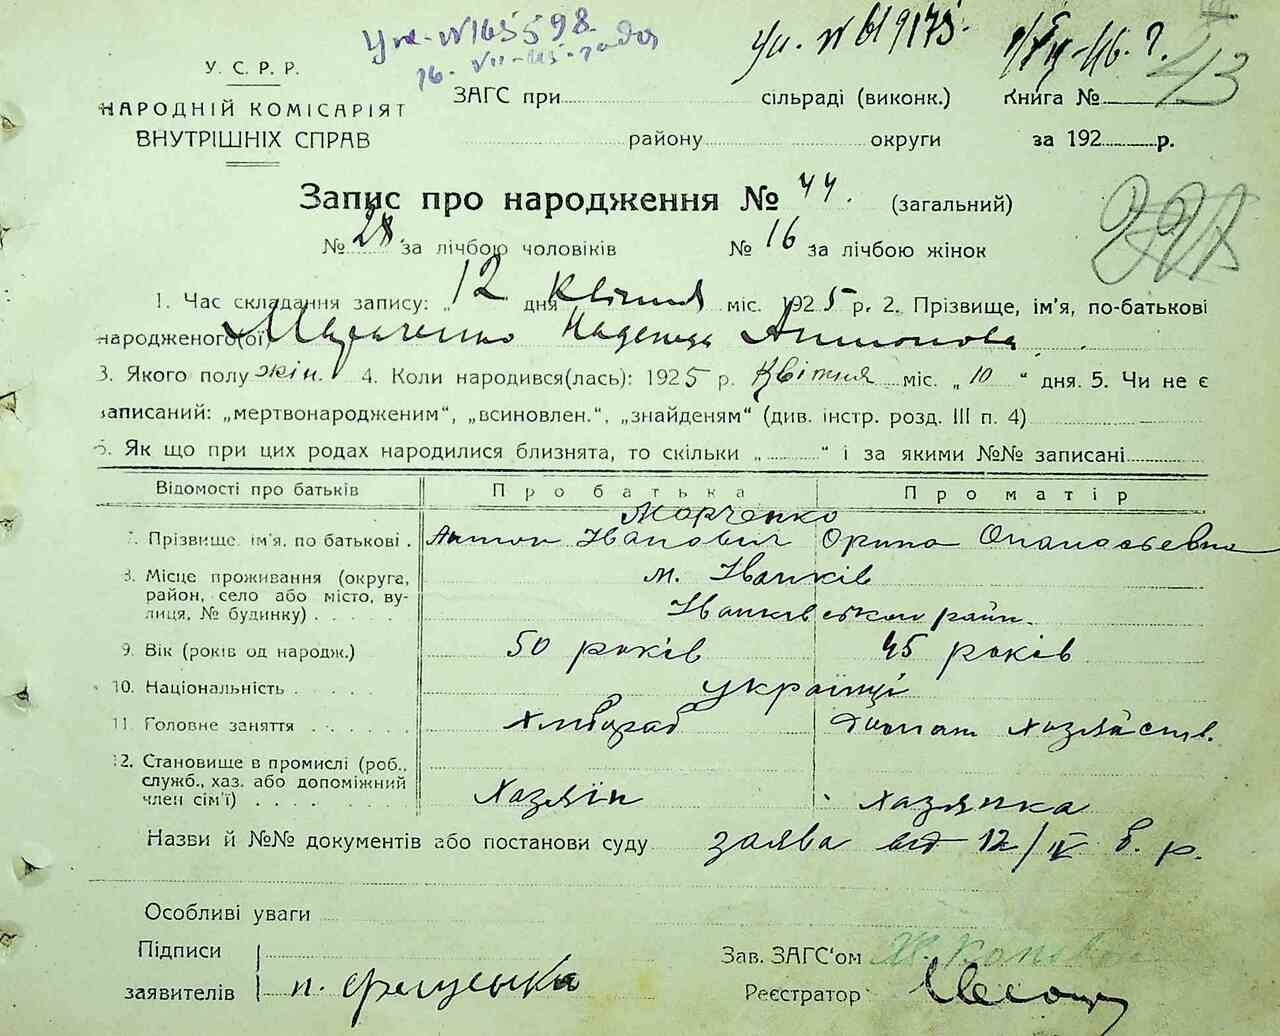 №165598.
16. VII-45.
№ 619175.
43
У. С. Р. Р.
НАРОДНІЙ КОМІСАРІЯТ
ВНУТРІШНІХ СПРАВ
ЗАГС при сільраді (виконк.) Книга №
району округи за 192 р.
Запис про народження № 44. (загальний)
№ 28 за лічбою чоловіків № 16 за лічбою жінок
1. Час складання запису: „12 дня Квітня міс. 1925 р. 2. Прізвище, ім'я, по-батькові
народженого(ої) Марченко Надежда Антонова
3. Якого полу жін. 4. Коли народився(лась): 1925 р. Квітня міс. „10“ дня. 5. Чи не є
записаний: „мертвонародженим“, „всиновлен.“, „знайденям“ (див. інстр. розд. III п. 4)
6. Як що при цих родах народилися близнята, то скільки „ “ і за якими №№ записані
Відомості про батьків Про батька Про матір
Марченко
7. Прізвище, ім'я, по батькові . Антон Іванович Орина Опанасьевна
8. Місце проживання (округа, м. Іванків
район, село або місто, ву-
лиця, № будинку) . . . . . Іванківськ район.
9. Вік (років од народж.) 50 років 45 років
10. Національність . . . . . українці
11. Головне заняття . . . . . Хлібороб домаш хозяйств.
12. Становище в промислі (роб.,
служб., хаз. або допоміжний
член сім'ї) . . . . Хазяїн хазяйка
Назви й №№ документів або постанови суду заява від 12/IV б. р.
Особливі уваги
Підписи Зав. ЗАГС'ом
заявителів п. Реєстратор